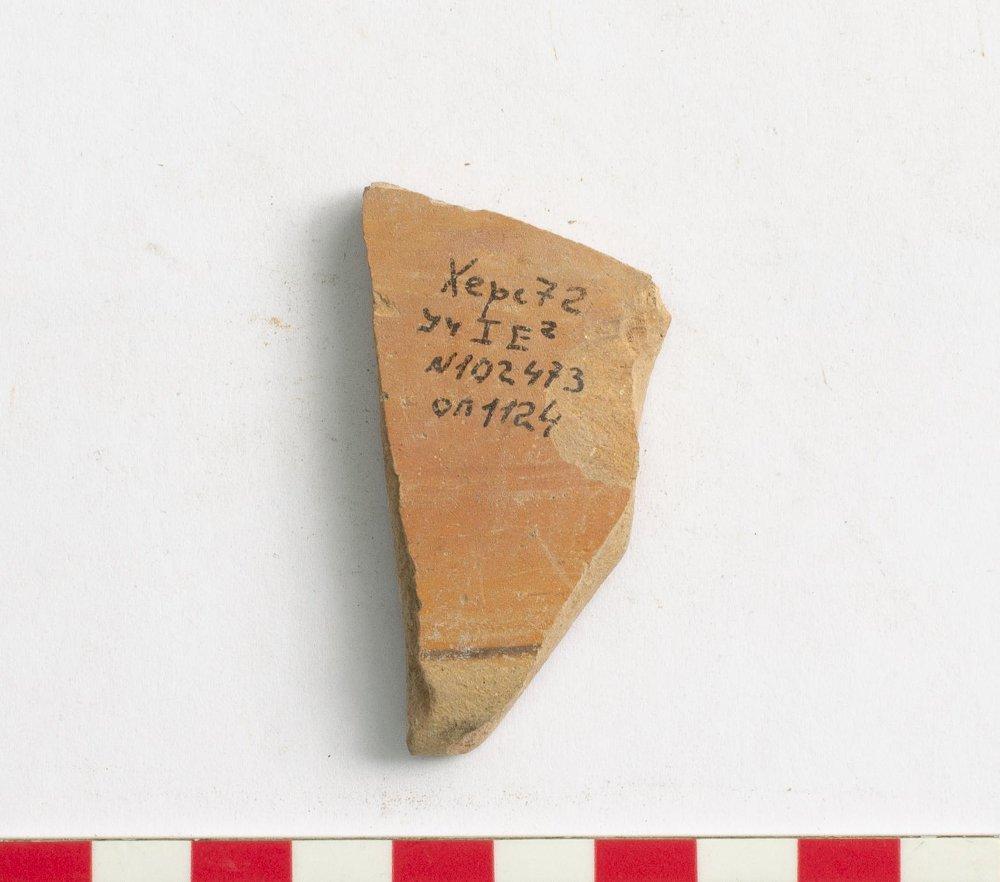 Херс72
Уч I E²
N102473
оп1124